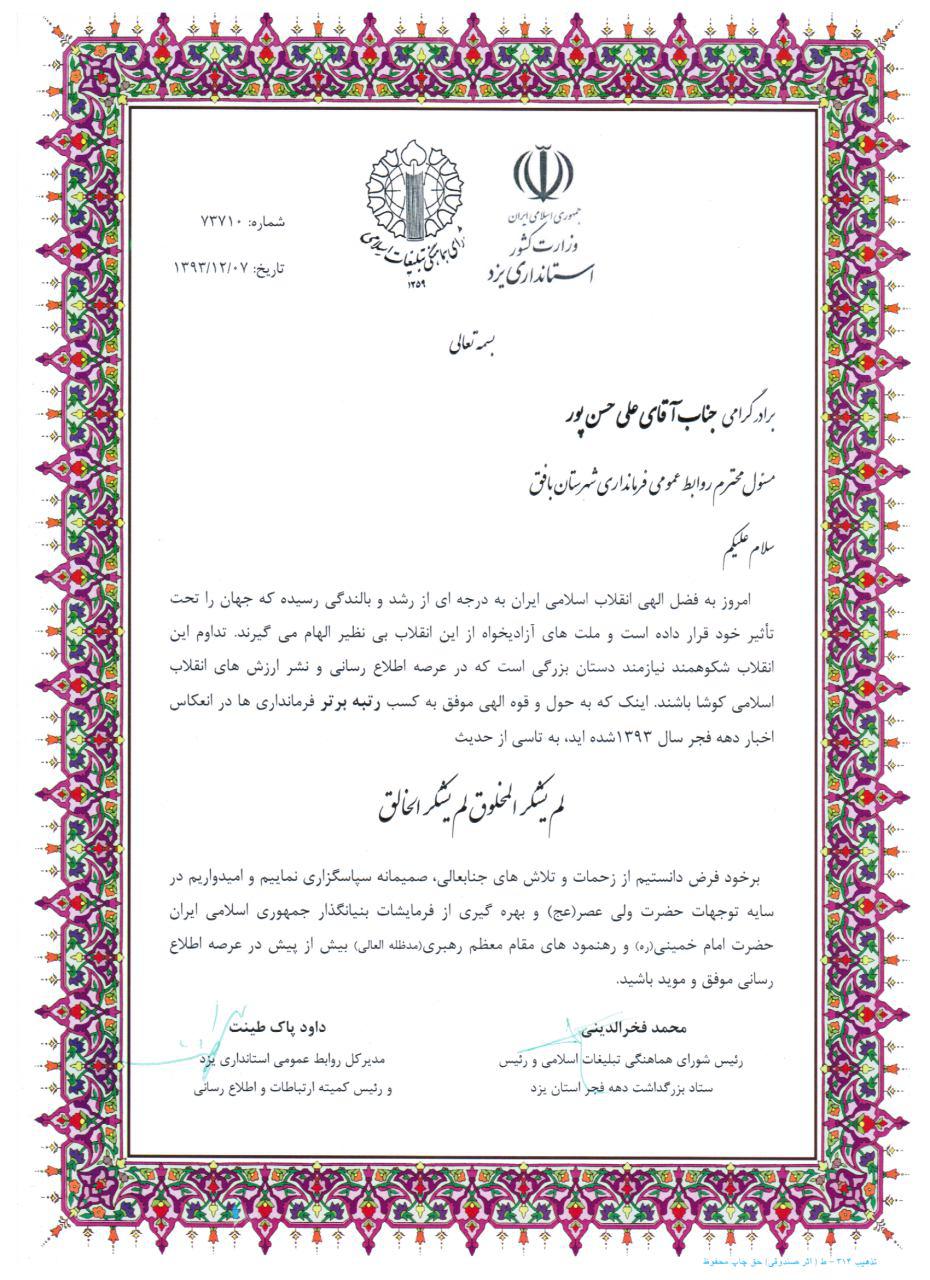 جمهوری اسلامی ایران
وزارت کشور
استانداری یزد
شورای هماهنگی تبلیغات اسلامی
۱۳۵۹
شماره: ۷۳۷۱۰
تاریخ: ۱۳۹۳/۱۲/۰۷
بسمه تعالی
برادر گرامی جناب آقای علی حسن پور
مسئول محترم روابط عمومی فرمانداری شهرستان بافق
سلام علیکم
امروز به فضل الهی انقلاب اسلامی ایران به درجه ای از رشد و بالندگی رسیده که جهان را تحت
تأثیر خود قرار داده است و ملت های آزادیخواه از این انقلاب بی نظیر الهام می گیرند. تداوم این
انقلاب شکوهمند نیازمند دستان بزرگی است که در عرصه اطلاع رسانی و نشر ارزش های انقلاب
اسلامی کوشا باشند. اینک که به حول و قوه الهی موفق به کسب رتبه برتر فرمانداری ها در انعکاس
اخبار دهه فجر سال ۱۳۹۳شده اید، به تاسی از حدیث
لم یشکر المخلوق لم یشکر الخالق
برخود فرض دانستیم از زحمات و تلاش های جنابعالی، صمیمانه سپاسگزاری نماییم و امیدواریم در
سایه توجهات حضرت ولی عصر(عج) و بهره گیری از فرمایشات بنیانگذار جمهوری اسلامی ایران
حضرت امام خمینی(ره) و رهنمود های مقام معظم رهبری(مدظله العالی) بیش از پیش در عرصه اطلاع
رسانی موفق و موید باشید.
محمد فخرالدینی
رئیس شورای هماهنگی تبلیغات اسلامی و رئیس
ستاد بزرگداشت دهه فجر استان یزد
داود پاک طینت
مدیرکل روابط عمومی استانداری یزد
و رئیس کمیته ارتباطات و اطلاع رسانی
تذهیب ۳۱۴ - ط ( اثر صندوقی) حق چاپ محفوظ